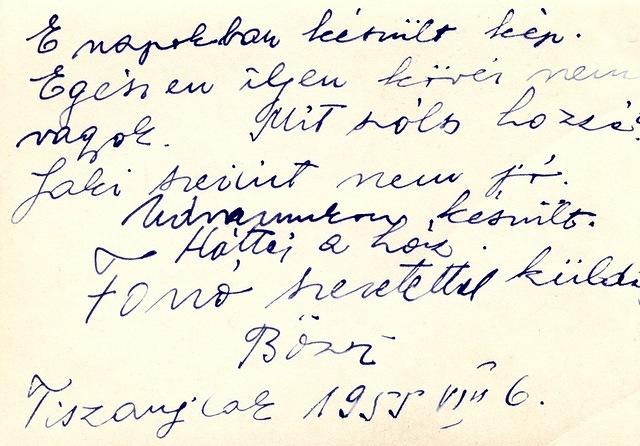 E napokban készült kép.
Egészen ilyen kövér nem
vagok. Mit szólsz hozzá?
Jaki szerint nem jó.
Udvarunkon készült.
Háttér a ház.
Forró szeretettel küldi
Bözsi
1955 VIII 6.